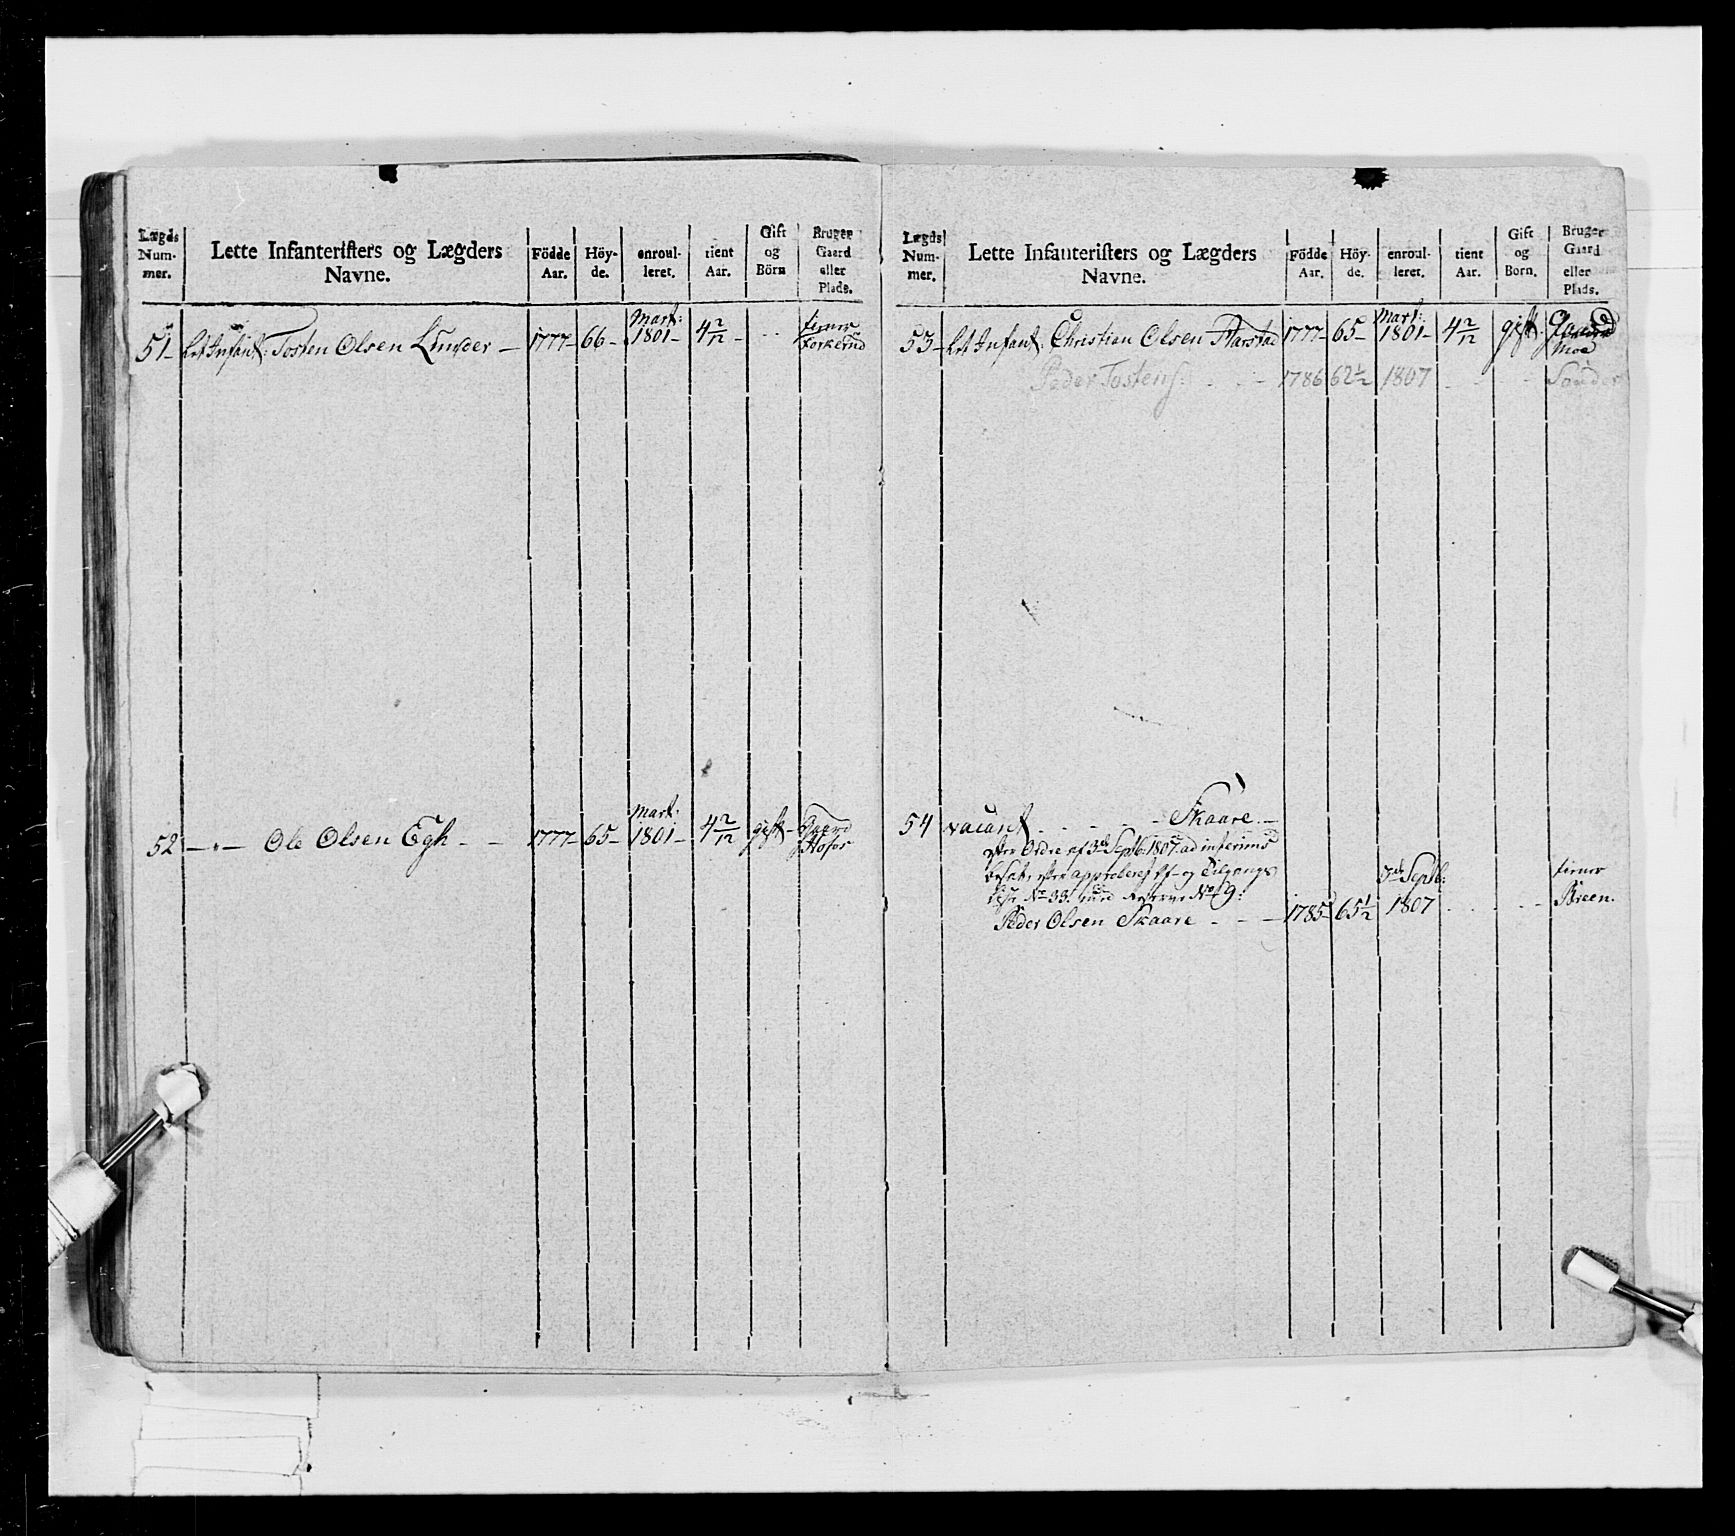 Lægds Num-mer. Lette Infanterister og Lægders Navne. Födde Aar. Höy-de. enroul-leret. tient Aar. Gift og Börn Bruger Gaard eller Plads.
51 let Infant: Tosten Olsen Lunder 1777 66 Mart: 1801 4 2/12 tiener
52 Ole Olsen Egh 1777 65 Mart: 1801 4 2/12 gift Gaard Hofor
Lægds Num-mer. Lette Infanterister og Lægders Navne. Födde Aar. Höy-de. enroul-leret. tient Aar. Gift og Born. Bruger Gaard eller Plads.
53 let Infant: Christian Olsen Harstad 1777 65 Mart: 1801 4 2/12 gift Gaard Moe
Peder Tostens: 1786 62½ 1807 Sönder
54 vacant Skaare
efter Ordre af 3de Septb: 1807 ad interims
besat, efter approberet Af- og Tilgangs
Liste No 33. med Reserve No 9:
Peder Olsen Skaare 1785 65½ 3de Septb: 1807 tiener Breen.